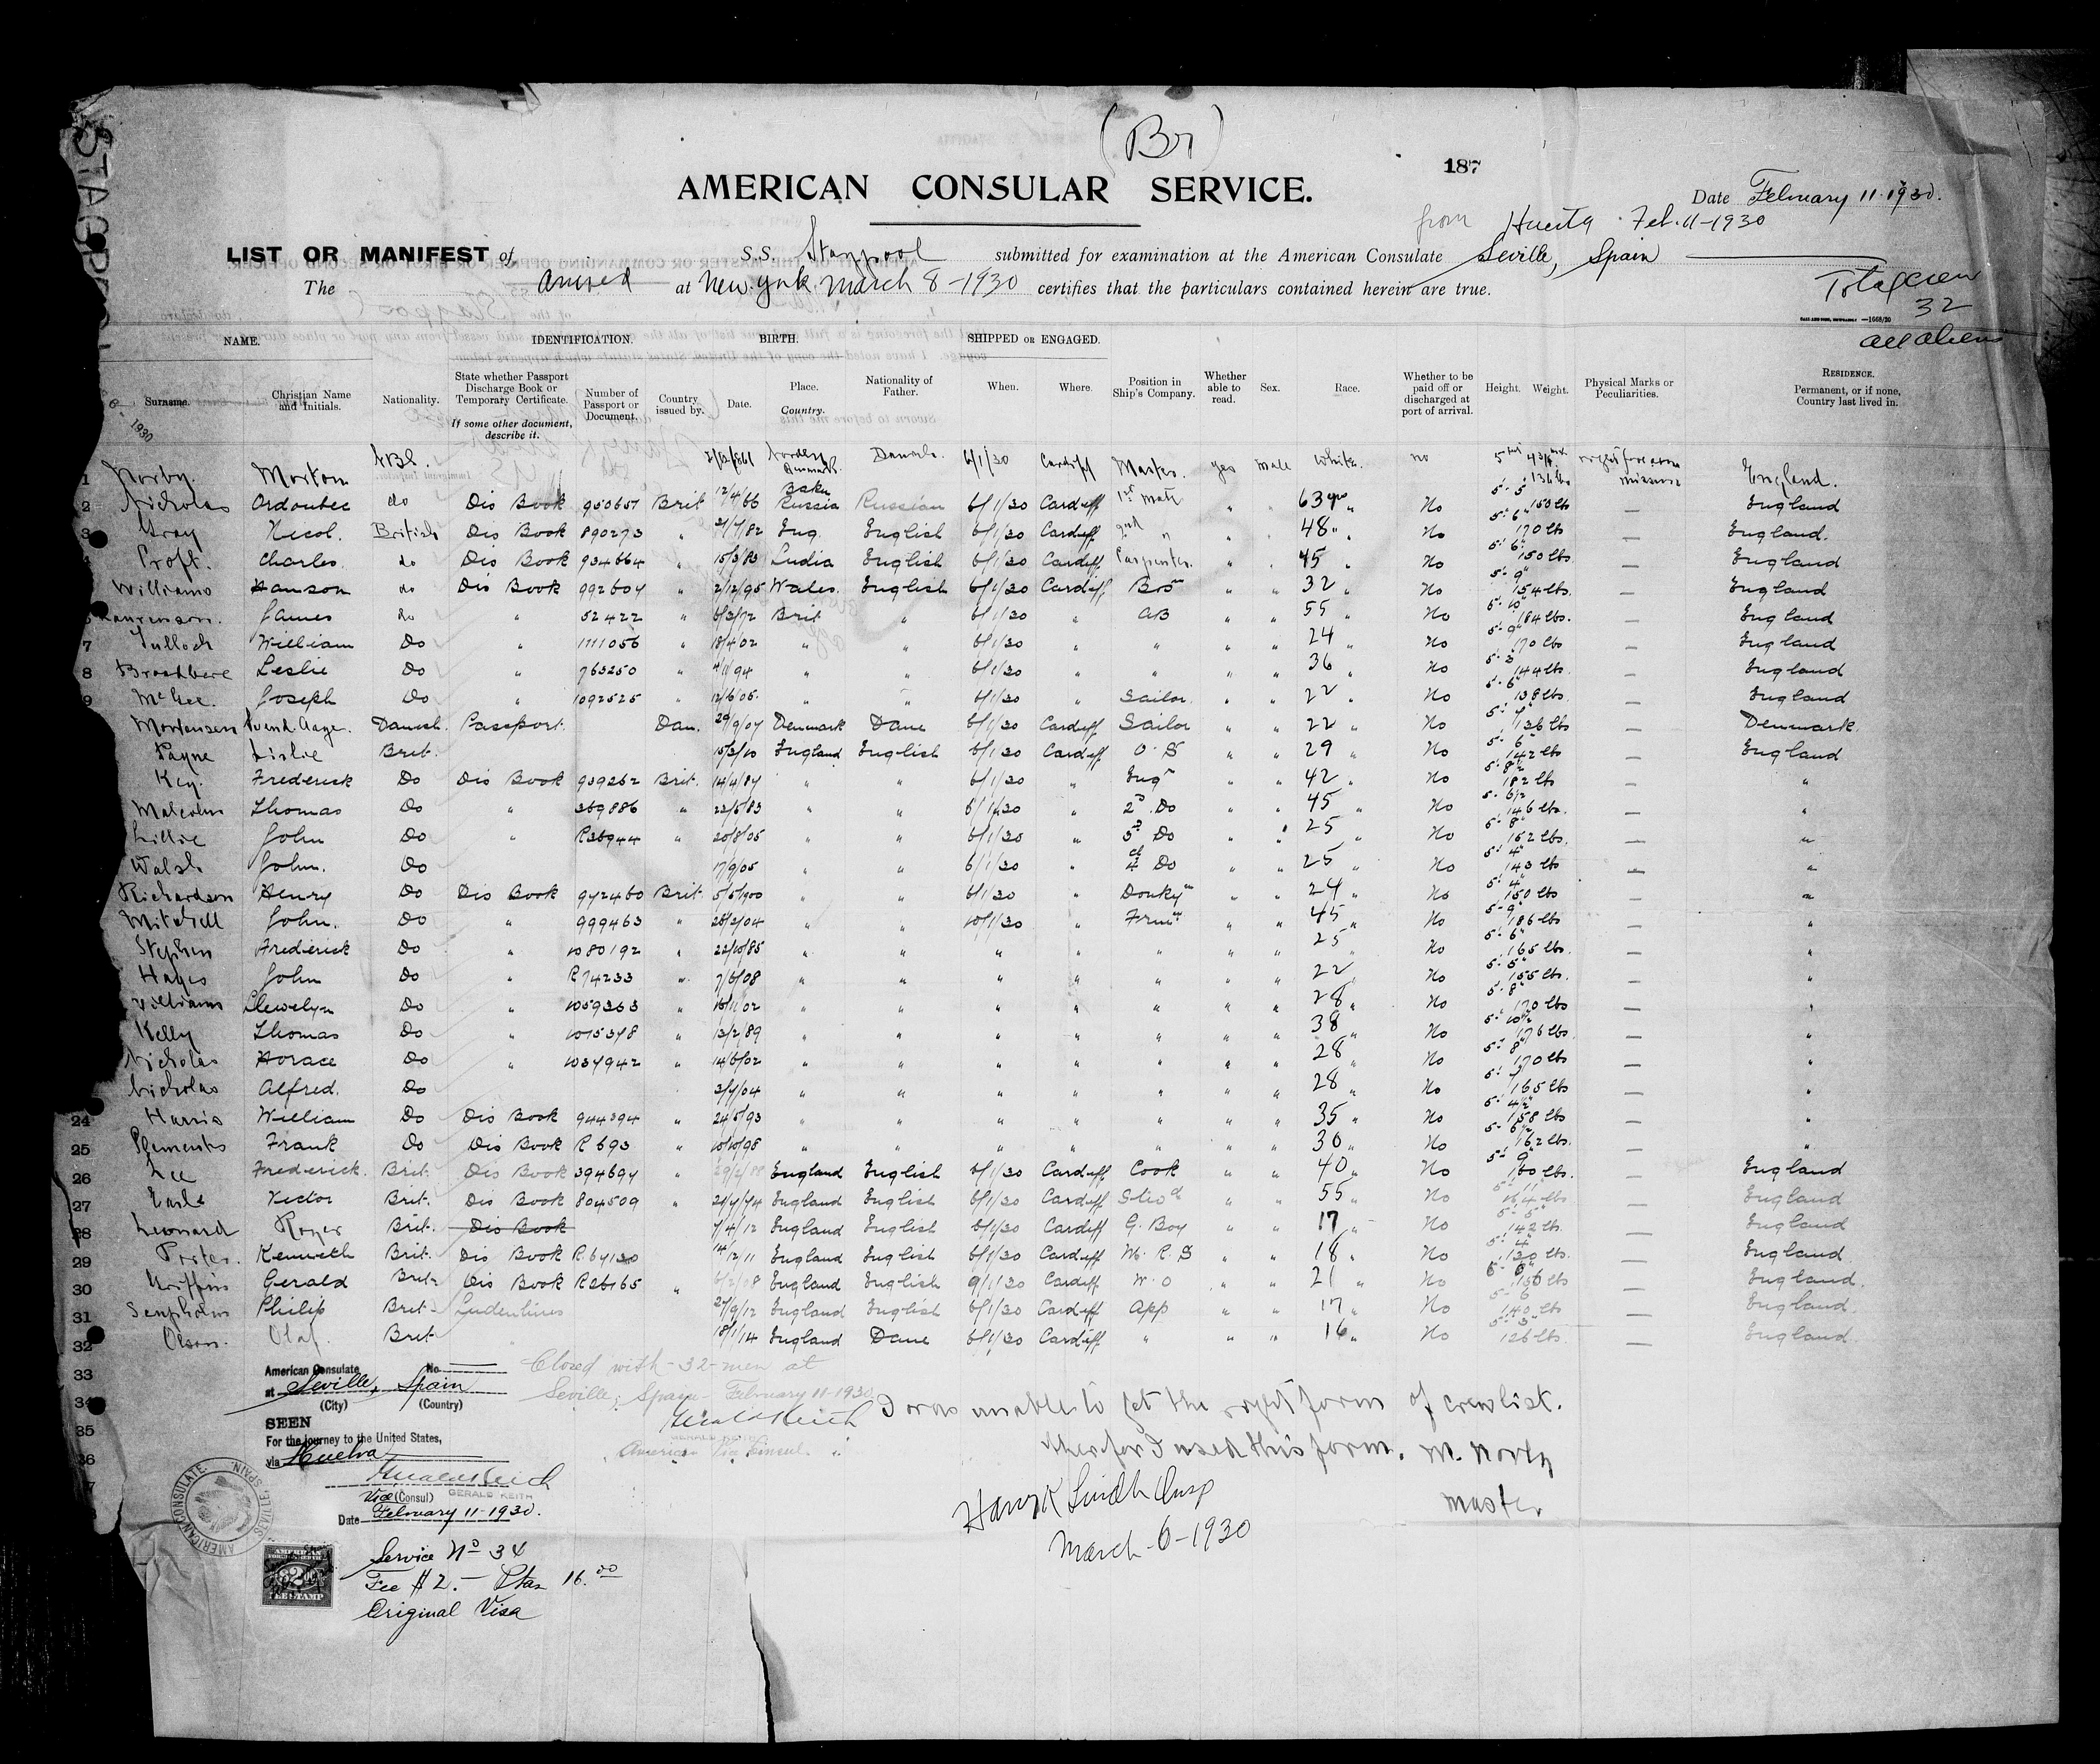 STAGPOOL
(Br)
187
AMERICAN CONSULAR SERVICE.
Date February 11-1930.
from Huelva Feb. 11-1930
LIST OR MANIFEST of S.S. Stagpool submitted for examination at the American Consulate Seville, Spain
The arrived at New York March 8-1930 certifies that the particulars contained herein are true.
Total crew
32
all aliens
NAME. IDENTIFICATION. BIRTH. SHIPPED OR ENGAGED.
Surname. Christian Name and Initials. Nationality. State whether Passport Discharge Book or Temporary Certificate. If some other document, describe it. Number of Passport or Document. Country issued by. Date. Place. Country. Nationality of Father. When. Where. Position in Ship's Company. Whether able to read. Sex. Race. Whether to be paid off or discharged at port of arrival. Height. Weight. Physical Marks or Peculiarities. RESIDENCE. Permanent, or if none, Country last lived in.
1 Norby Morton 6/1/30 Cardiff Master yes male White no right forearm missing England.
2 Nicholas do Dis Book 950657 Brit 12/4/66 Baku Russia Russian 6/1/30 Cardiff 1st Mate " " 63 yrs " No 5'-5" 150 lbs England
3 Gray Nicol. British Dis Book 890273 " 21/7/82 Eng. English 6/1/30 Cardiff 2nd " " " 48 " No 5'-6" 170 lbs — England.
Proft. Charles. do Dis Book 934664 " 15/3/83 India English 6/1/30 Cardiff Carpenter " " 45 " No 5'-6" 150 lbs — England
Williams Hanson do Dis Book 992604 " 2/12/95 Wales English 6/1/30 Cardiff Bosn " " 32 " No 5'-9" 154 lbs. — England
Laurenson. James do " 52422 " 6/3/72 Brit " 6/1/30 " AB " " 55 " No 5'-10" 184 lbs. — England
7 Tulloch William Do " 1111056 " 18/4/02 " " 6/1/30 " " " " 24 " No 5'-9" 170 lbs — England
8 Broadbere Leslie Do " 763250 " 4/1/94 " " 6/1/30 " " " " 36 " No 144 lbs. — England
9 McGee. Joseph Do " 1092525 " 12/6/05 " " 6/1/30 " Sailor " " 22 " No 5'-6" 138 lbs. — England
Mortensen Svend Aage. Danish Passport. Dan. 29/9/07 Denmark Dane 6/1/30 Cardiff Sailor " " 22 " No 136 lbs — Denmark.
Payne Lislie Brit. 15/3/10 England English 6/1/30 Cardiff O.S " " 29 " No 5'-6" 142 lbs — England
Key. Frederick Do Dis Book 939262 Brit. 14/4/87 " " 6/1/30 " Engr " " 42 " No 182 lbs — "
Malcolm Thomas Do " 369886 " 22/5/83 " " 6/1/30 " 2d Do " " 45 " No 5'-6½" 146 lbs. — "
Lillie John Do " R36944 " 20/8/05 " " 6/1/30 " 3d Do " " 25 " No 5'-8" 162 lbs. — "
Walsh John. Do 17/9/05 " " 6/1/30 " 4 Do " " 25 " No 5'-4" 143 lbs — "
Richardson Henry Do Dis Book 942460 Brit. 5/5/1900 " " 6/1/30 " Donkyn " " 24 " No 5'-4" 150 lbs — "
Mitchell John. Do " 999463 " 26/2/04 " " 10/1/30 " Frmn " " 45 " No 5'-9" 186 lbs — "
Stephen Frederick Do " 1080192 " 22/10/85 " " " " " " " 25 " No 5'-6" 165 lbs — "
Hayes John Do " R74233 " 7/6/08 " " " " " " " 22 " No 5'-5" 155 lbs. — "
Williams Llewelyn Do " 1059363 " 16/11/02 " " " " " " " 28 " No 5'-8" 170 lbs — "
Kelly Thomas Do " 1075378 " 13/2/89 " " " " " " " 38 " No 5'-10½" 176 lbs — "
Nicholas Horace Do " 1037942 " 14/6/02 " " " " " " " 28 " No 5'-8" 170 lbs — "
Nicholas Alfred. Do 3/7/04 " " " " " " " 28 " No 165 lbs — "
24 Harris William Do Dis Book 944394 " 24/5/93 " " " " " " " 35 " No 5'-4½" 158 lbs — "
25 Clements Frank Do Dis Book R 693 " 10/10/98 " " " " " " " 30 " No 5'-6½" 162 lbs. — "
26 Lee Frederick. Brit. Dis Book 394694 " England English 6/1/30 Cardiff Cook " " 40 " No 5'-9" 160 lbs. — England
27 Earle Victor Brit. Dis Book 804509 " 29/7/74 England English 6/1/30 Cardiff Stwd " " 55 " No 164 lbs — England
28 Leonard Roger Brit. Dis Book 7/4/12 England English 6/1/30 Cardiff G. Boy " " 17 " No 5'-5" 142 lbs. — England
29 Porter. Kenneth Brit. Dis Book R.64130 14/2/11 England English 6/1/30 Cardiff M.R.S " " 18 " No 5'-4" 130 lbs. — England
30 Griffins Gerald Brit. Dis Book R26165 " England English 9/1/30 Cardiff W.O " " 21 " No 156 lbs — England.
31 Philip Brit. Indentures 27/9/12 England English 6/1/30 Cardiff App " " 17 " No 5'-6" 140 lbs — England.
32 Olsen. Olaf. Brit. 18/1/14 England Dane 6/1/30 Cardiff " " " 16 " No 5'-5" 126 lbs. — England.
33
34
35
36
American Consulate No.
at Seville, Spain
(City) (Country)
SEEN
For the journey to the United States,
via Huelva
Gerald Keith
Vice (Consul) GERALD KEITH
Date February 11-1930.
AMERICAN CONSULATE. SEVILLE, SPAIN.
Service No 34
Fee $2.— Ptas 16.00
Original Visa
Closed with -32- men at
Seville, Spain - February 11-1930
Gerald Keith
GERALD KEITH
American Vice Consul.
I was unable to get the right form of crew list.
therefor I used this form. M. Norby
Master
March-6-1930